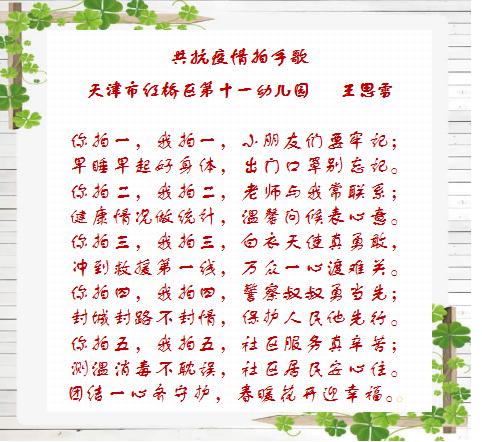 共抗疫情拍手歌
天津市红桥区第十一幼儿园 王思雷
你拍一，我拍一，小朋友们要牢记；
早睡早起好身体，出门口罩别忘记。
你拍二，我拍二，老师与我常联系；
健康情况做统计，温馨问候表心意。
你拍三，我拍三，白衣天使真勇敢，
冲到救援第一线，万众一心渡难关。
你拍四，我拍四，警察叔叔勇当先；
封城封路不封情，保护人民他先行。
你拍五，我拍五，社区服务真辛苦；
测温消毒不耽误，社区居民安心住。
团结一心齐守护，春暖花开迎幸福。